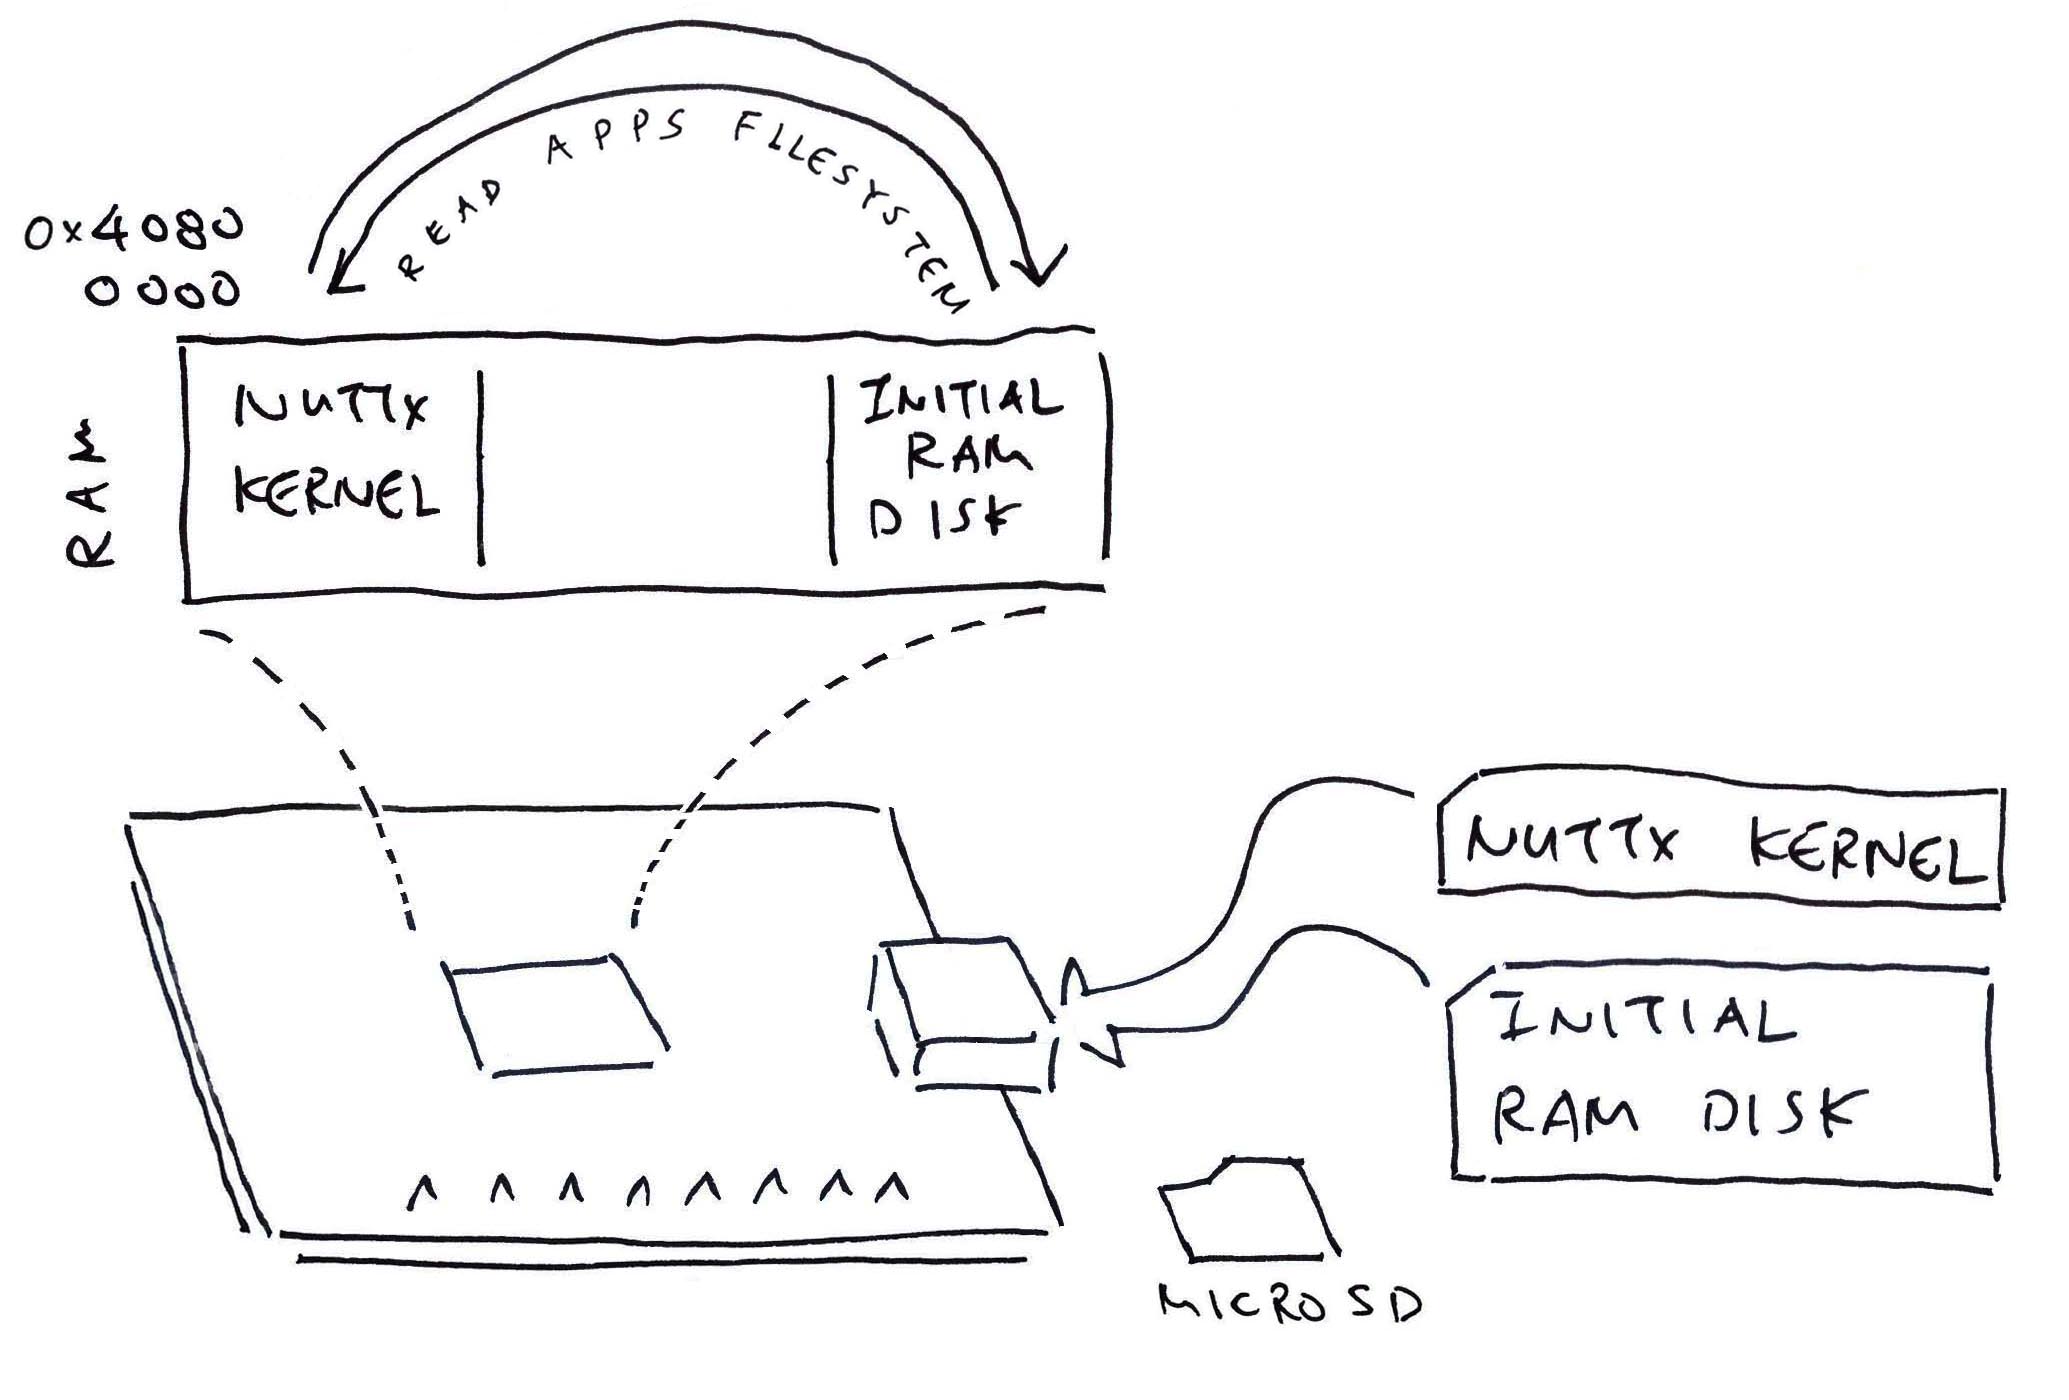 READ APPS FILESYSTEM
0x4080
0000
RAM
NUTTX
KERNEL
INITIAL
RAM
DISK
NUTTX KERNEL
INITIAL
RAM DISK
MICROSD